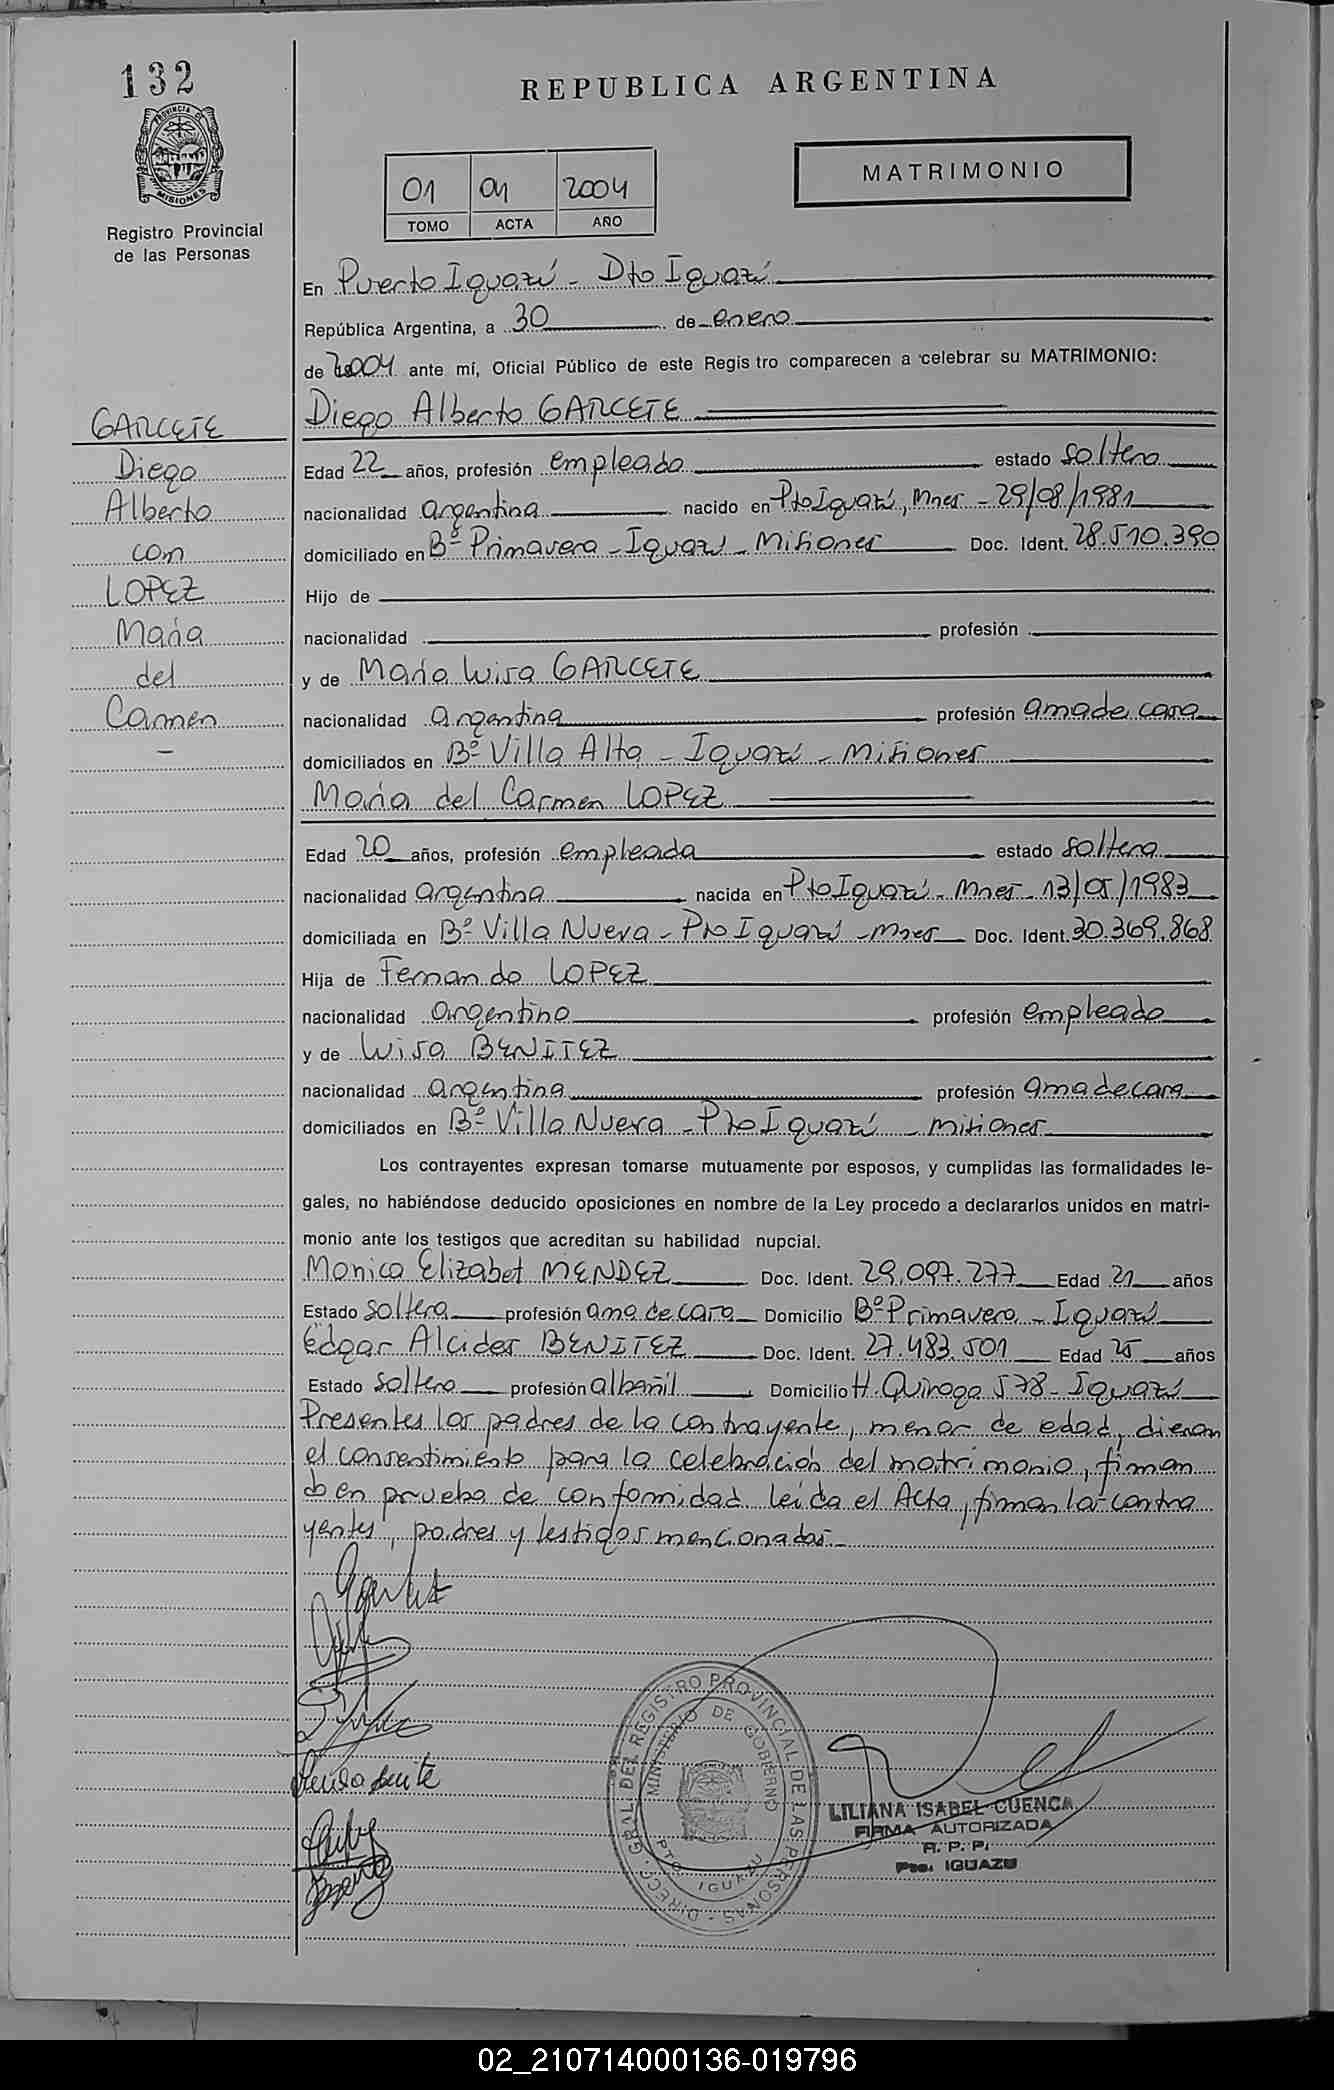 132
PROVINCIA DE
MISIONES
Registro Provincial
de las Personas
REPUBLICA ARGENTINA
MATRIMONIO
01 01 2004
TOMO ACTA AÑO
En Puerto Iguazú - Dto Iguazú
República Argentina, a 30 de enero
de 2004 ante mí, Oficial Público de este Registro comparecen a celebrar su MATRIMONIO:
Diego Alberto GARCETE
GARCETE
Diego
Alberto
con
LOPEZ
María
del
Carmen
-
Edad 22 años, profesión empleado estado soltero
nacionalidad argentina nacido en Pto Iguazú, Mnes - 29/08/1981
domiciliado en Bº Primavera - Iguazú - Misiones Doc. Ident. 28.510.390
Hijo de
nacionalidad profesión
y de María Luisa GARCETE
nacionalidad argentina profesión ama de casa
domiciliados en Bº Villa Alta - Iguazú - Misiones
María del Carmen LOPEZ
Edad 20 años, profesión empleada estado soltera
nacionalidad argentina nacida en Pto Iguazú - Mnes - 13/05/1983
domiciliada en Bº Villa Nueva - Pto Iguazú - Mnes Doc. Ident. 30.369.868
Hija de Fernando LOPEZ
nacionalidad argentina profesión empleado
y de Luisa BENITEZ
nacionalidad argentina profesión ama de casa
domiciliados en Bº Villa Nueva - Pto Iguazú - Misiones
Los contrayentes expresan tomarse mutuamente por esposos, y cumplidas las formalidades le-
gales, no habiéndose deducido oposiciones en nombre de la Ley procedo a declararlos unidos en matri-
monio ante los testigos que acreditan su habilidad nupcial.
Monica Elizabet MENDEZ Doc. Ident. 29.097.277 Edad 21 años
Estado soltera profesión ama de casa Domicilio Bº Primavera - Iguazú
Edgar Alcides BENITEZ Doc. Ident. 27.483.501 Edad 25 años
Estado soltero profesión albañil Domicilio H. Quiroga 578 - Iguazú
Presentes los padres de la contrayente, menor de edad, dieron
el consentimiento para la celebración del matrimonio, firman
do en prueba de conformidad. Leida el Acta, firman los contra
yentes, padres y testigos mencionados.-
DIRECC. GRAL. DEL REGISTRO PROVINCIAL DE LAS PERSONAS
MINISTERIO DE GOBIERNO
PTO. IGUAZU
LILIANA ISABEL CUENCA
FIRMA AUTORIZADA
R. P. P.
Pto. IGUAZU
02_210714000136-019796